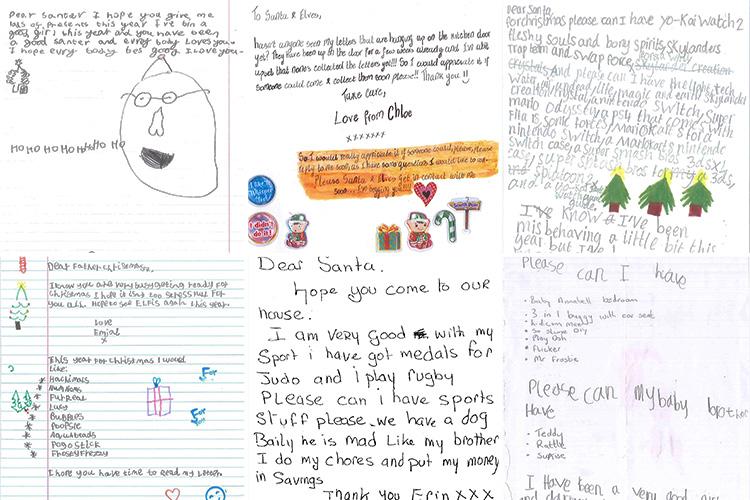 Dear santer I hope you give me
lots of presents this year I've bin a
good girl this year and you have been
a good santer and every baby loves you.
I hope evry baby bes good I love you.
HO HO HO HO HO HO
To Santa & Elves,
hasn't anyone seen my letters that are hanging up on the kitchen door
yet? They have been up on the door for a few weeks already and I've abit
upset that no ones collected the letters yet!!! So I would appreciate it if
someone could come & collect them soon please!! Thank you!!
Take care,
Love from Chloe
xxxxxxx
So I would really appreciate it if someone could, please, please
reply to me soon, as I have some questions I would like to ask.
Please Santa & Elves get in contact with me
soon... I'm begging you!!!!
I didn't do it!
South Pole
Dear Santa,
for christmas please can I have yo-Kai watch 2
fleshy souls and bony spirits, skylanders
trap team and swap force
and please can I have the light, tech,
water, undead, life, magic and earth skylanders
nintendo switch, super
mario odyssey, a ps4 that comes with
nintendo switch, a Mariokart 8 for a
switch case, a super smash bros 3ds XL
case, super
splatoon 2
and a
I've know I've been
misbehaving a little bit this
year but I've
Dear Father christmas,
I know you are very busy getting ready for
christmas I hope it isnt too stressful for
you all. Hope to see Elfis again this year.
Love
x
This year for christmas I would
Like:
Hachimals
Furreal
Lucy
Bubbles
Poopsie
Aquabeads
Pogo stick
I hope you have time to read my letter.
Dear Santa.
Hope you come to our
house.
I am very good with my
Sport i have got medals for
Judo and i play rugby
Please can i have sports
stuff please. we have a dog
Baily he is mad like my brother
I do my chores and put my money
in Savings
Thank you Erin xxx
Please can I have
• Baby Annabell bedroom
• 3 in 1 buggy with car seat
• So slime DIY
• Play Doh
• Flicker
• Mr Frostie
Please can my baby brother
Have
• Teddy
• Rattle
• Suprise
I have been a very